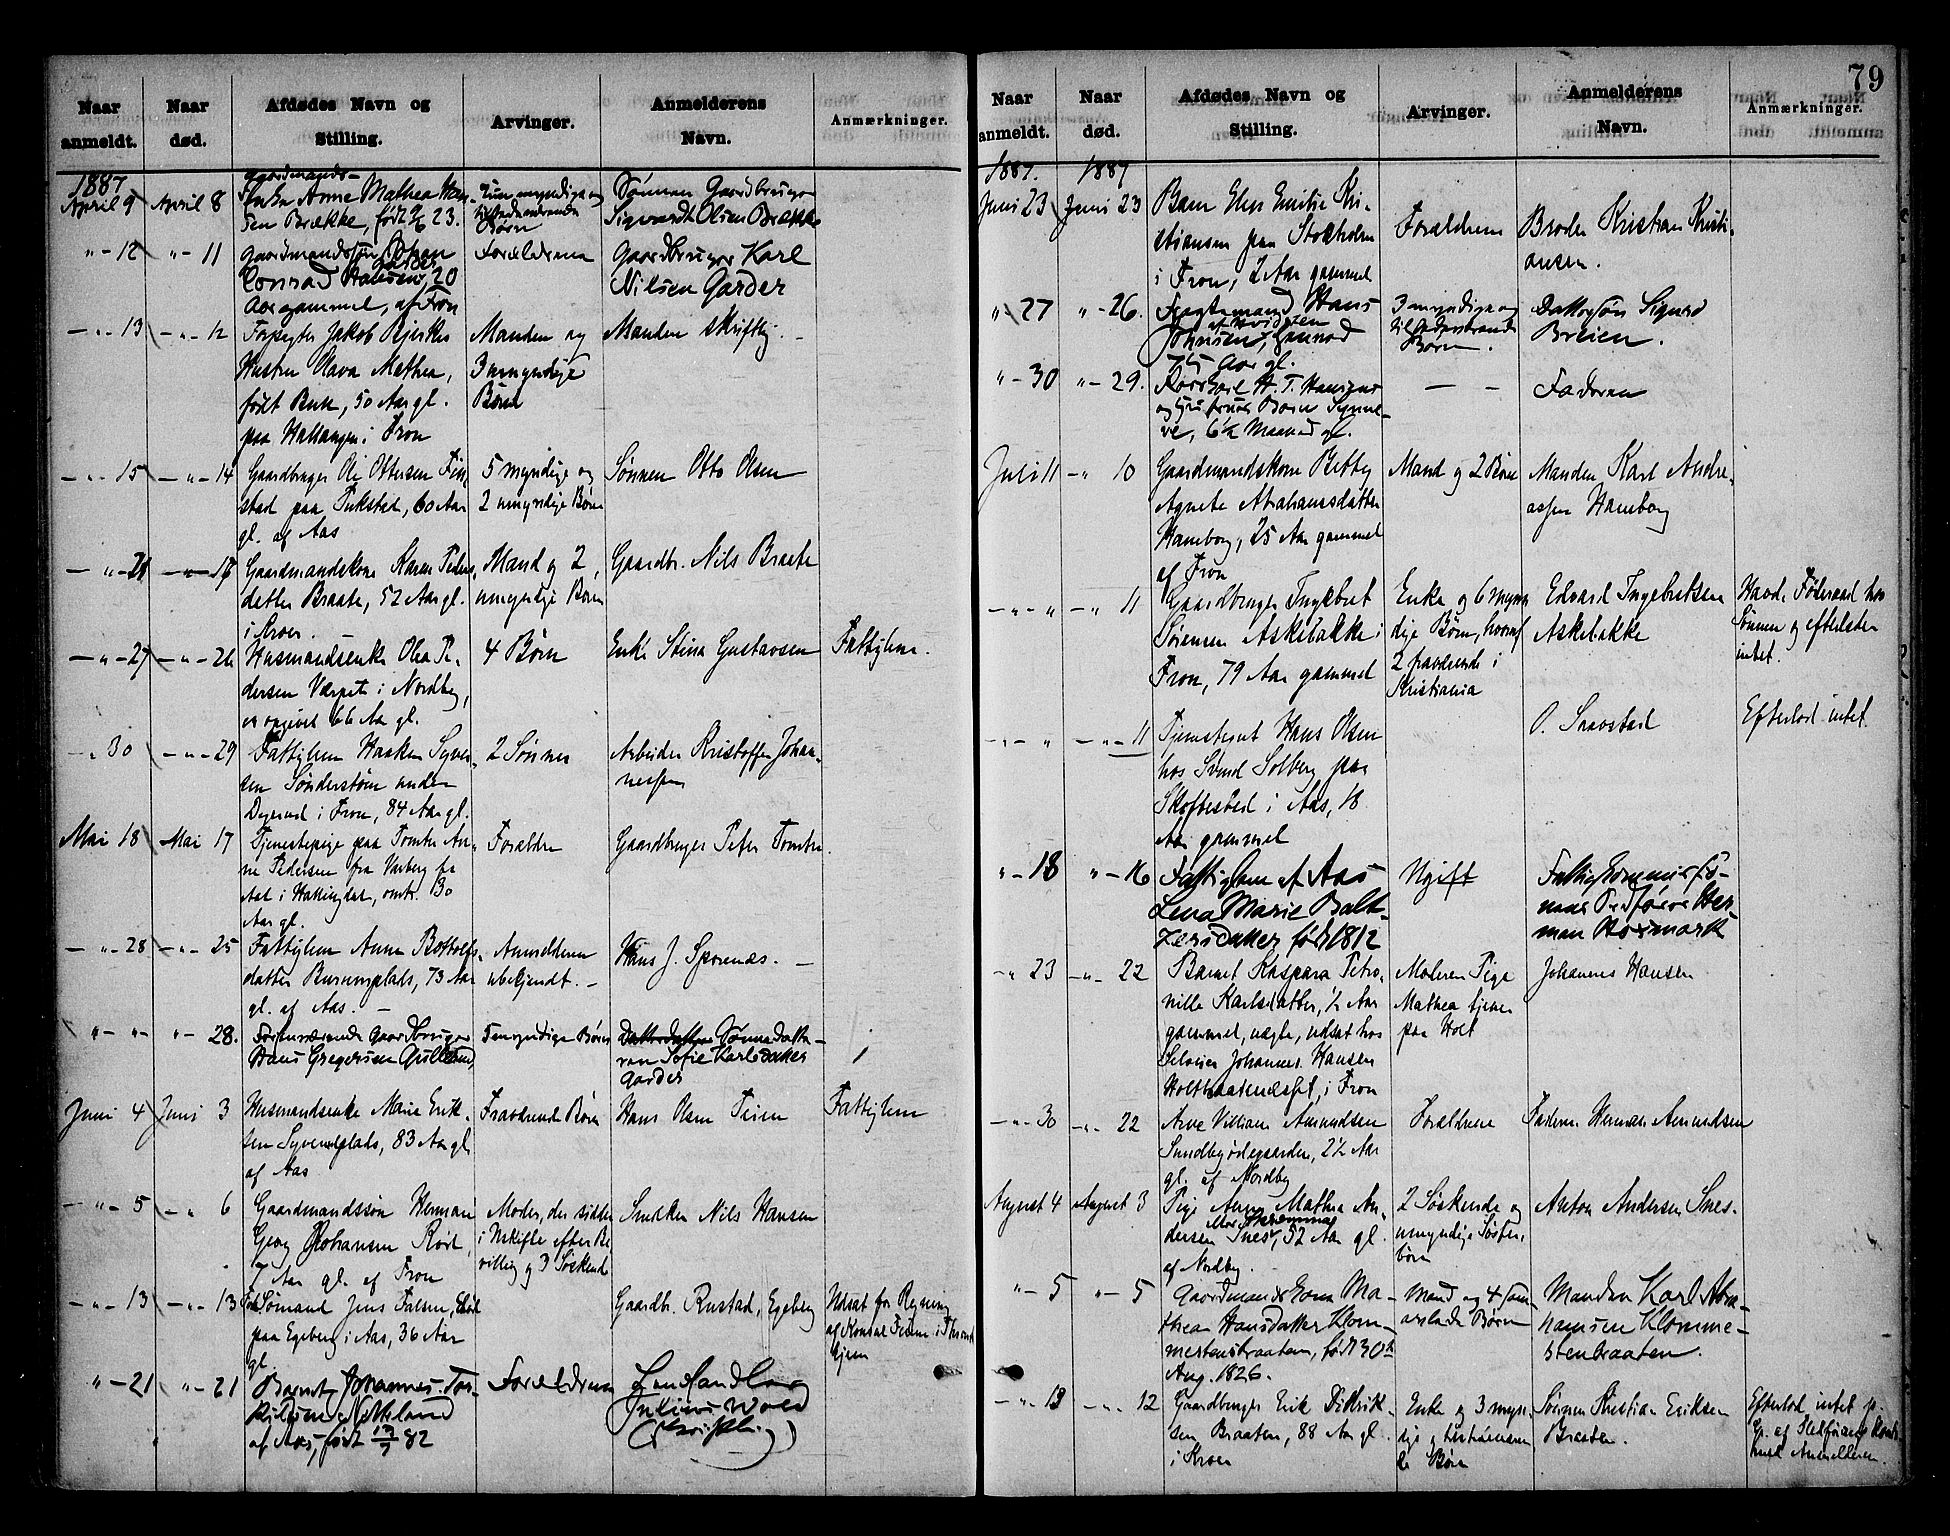 79
Naar anmeldt. Naar død. Afdødes Navn og Stilling. Arvinger. Anmelderens Navn. Anmærkninger.
1887
April 9 April 8 gaardmands-
Enke Anne Mathea Han-
sen Brække, født 23. myndige og
tilstedeværende
Børn Sønnen Gaardbruger
Sigvardt Olsen Brække
" - 12 " - 11 Gaardmandssøn Johan
Conrad Hansen Garder, 20
Aar gammel, af Fron Forældrene Gaardbruger Karl
Nilsen Garder
- " - 13 - " - 12 Jakob Bjerkes
Hustru Olava Mathea,
født Buk, 50 Aar gl.
paa Hallangen i Fron Manden og
3 umyndige
Børn Manden skriftlig.
- " - 15 - " - 14 Gaardbruger Ole Ottersen Fin-
stad paa Tukstad, 60 Aar
gl. af Aas 5 myndige og
2 umyndige Børn Sønnen Otto Olsen
- " - 21 - " - 17 Gaardmandskone Karen Peders-
datter Braate, 52 Aar gl.
i Kroer. Mand og 2
umyndige Børn Gaardbr. Nils Braate
- " - 27 - " - 26 Husmandsenke Olea Pe-
dersen Værpet i Nordby,
er opgivet 66 Aar gl. 4 Børn Enke Stina Gustavsen Fattiglem.
- " 30 - " - 29 Fattiglem Haaken Syver-
sen Sønderstøen under
Digerud i Fron, 84 Aar gl. 2 Sønner Arbeider Kristoffer Johan-
nessen
Mai 18 Mai 17 Tjenestepige paa Tomter An-
ne Pedersen fra Varberg
Aal i Hallingdal, omtr. 30
Aar gl. Forældre Gaardbruger Peter Tomter.
- " - 28 - " - 25 Fattiglem Anne Bottolfs-
datter Burumsplads, 73 Aar
gl. af Aas. Anmelderen
ubekjendt. Hans J. Sporenæs.
" - " " - 28. Forhenværende Gaardbruger
Hans Gregersen 5 myndige Børn Datterdatter Sønnedatte-
ren Sofie Karlsdatter
Garder
Juni 4 Juni 3 Husmandsenke Marie Erik-
sen Syverudplads, 83 Aar gl
af Aas Fraværende Børn Hans Olsen Teien Fattiglem
- " - 5 - " 6 Gaardmandssøn Herman
Georg Johansen Roit,
7 Aar gl. af Fron Moder, der sidder
i Uskifte efter Be
villing og 3 Søskende Snedker Nils Hansen
- " - 13 - " - 13 Sømand Jens Falsen,
paa Egeberg i Aas, 36 Aar
gl. Gaardbr. Rustad, Egeberg Udsat for Regning
af Konsul i Thrond
hjem
" - 21 " - 21 Barnet Johannes Tor-
kilsen Netteland
af Aas, født 82 Forældrene Lensmand
Julius Wold
(Skriftlig)
Naar anmeldt. Naar død. Afdødes Navn og Stilling. Arvinger. Anmelderens Navn. Anmærkninger.
1887. 1887
Juni 23 Juni 23 Barn Elen Emilie Kri-
stiansen paa Stokholm
i Fron, 2 Aar gammel Forældrene Broder Kristian Kristi-
ansen.
" 27 " - 26. Hans
Johnsen,
75 Aar gl. 3 myndige og
tilstedeværende
Børn. Dattersøn Sigurd
Breien.
" - 30 " - 29. H. T. Hansens
og Hustrues Barn Synne-
ve, 6½ Maaned gl. — - Faderen
Juli 11 - " 10 Gaardmandskone Betty
Agnete Abrahamsdatter
Hamborg, 25 Aar gammel
af Fron Mand og 2 Børn Manden Karl Andre-
assen Hamborg
- " - " - " 11 Gaardbruger Ingebret
Sørensen Askebakke i
Fron, 79 Aar gammel Enke og 6 myn
dige Børn, hvoraf
2 fraværende i
Kristiania Edvard Ingebretsen
Askebakke Havde Føderaad hos
Sønnen og efterlader
intet.
- " - " - " - 11 Tjenestegut Hans Olsen
hos Svend Solberg paa
Skoftestad i Aas, 18
Aar gammel O. Snavstad Efterlod intet
" - 18 " - 16 Fattiglem af Aas
Lena Marie Balt-
zersdatter født 1812 Ugift Fattigkommissio-
nens Ordfører Her-
man Holmark
- " 23 - " - 22 Barnet Kaspara Petro-
nille Karlsdatter, ½ Aar
gammel, uægte, udsat hos
Selveier Johannes Hansen
i Fron Moderen Pige
Mathea tjener
paa Holt Johannes Hansen
- " - 30 - " - 22 Arne Villiam Amundsen
Sundbyødegaarden, 2½ Aar
gl. af Nordby Forældrene Faderen Herman Amundsen
August 4 August 3 Pige Anne Mathea An-
dersen Snes, 52 Aar gl.
af Nordby. 2 Søskende og
umyndige Søster-
børn Anton Andersen Snes.
" - 5 " - 5 Gaardmandskone Ma-
thea Hansdatter Klom-
mestenbraaten, født 30te
Aug. 1826. Mand og 4
Børn Manden Karl Abra-
hamsen Klomme-
stenbraaten.
- " - 13 - " - 12 Gaardbruger Erik Didrik-
sen Braaten, 88 Aar gl.
i Kroer Enke og 3 myn-
dige og tilstedeværen
de Børn Sønnen Kristian Eriksen
Braaten. Efterlod intet